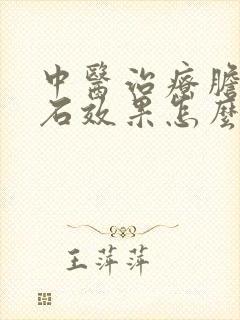 中醫治療膽
石效果怎麼
王萍萍